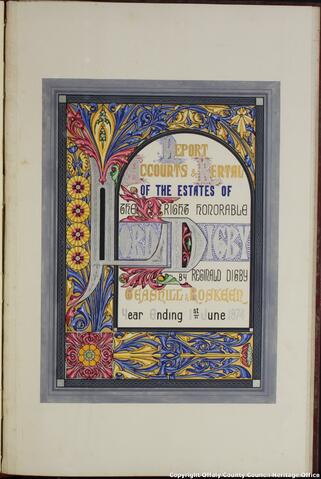 Report
Accourts & Rertal
OF THE ESTATES OF
The Right Honorable
Lord Digby
By Reginald Digby
Geashill &
Year Ending 1st June
Copyright Offaly County Council Heritage Office